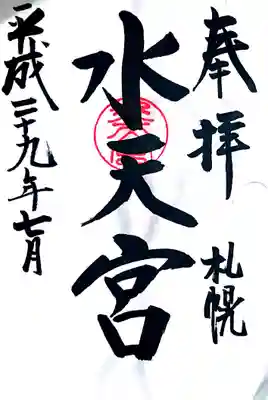 奉拝
札幌
水天宮
平成二十九年七月